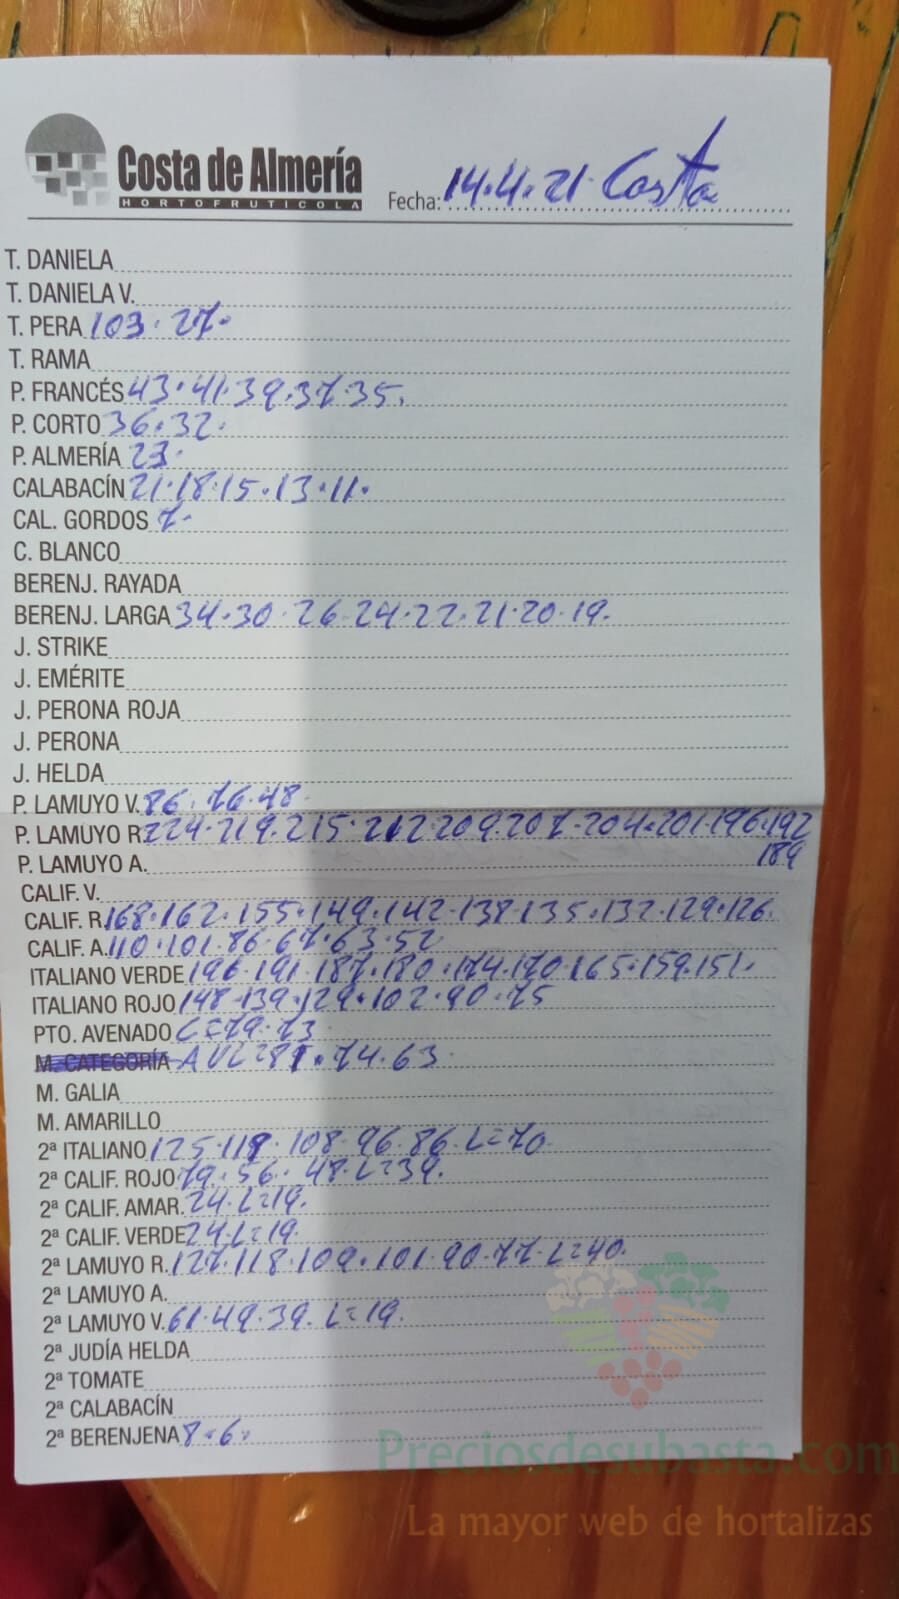 Costa de Almería
HORTOFRUTICOLA
Fecha: 14.4.21 Costa
T. DANIELA
T. DANIELA V.
T. PERA 103. 27.
T. RAMA
P. FRANCÉS 43. 41. 39. 37. 35.
P. CORTO 36. 32.
P. ALMERÍA 23.
CALABACÍN 21. 18. 15. 13. 11.
CAL. GORDOS 7.
C. BLANCO
BERENJ. RAYADA
BERENJ. LARGA 34. 30. 26. 24. 22. 21. 20. 19.
J. STRIKE
J. EMÉRITE
J. PERONA ROJA
J. PERONA
J. HELDA
P. LAMUYO V. 86. 76. 48.
P. LAMUYO R. 224. 219. 215. 212. 209. 207. 204. 201. 196. 192
189
P. LAMUYO A.
CALIF. V.
CALIF. R. 168. 162. 155. 149. 142. 138. 135. 132. 129. 126.
CALIF. A. 110. 101. 86. 67. 63. 52
ITALIANO VERDE 196. 191. 187. 180. 174. 170. 165. 159. 151.
ITALIANO ROJO 148. 139. 129. 102. 90. 75
PTO. AVENADO C=79. 73
M. CATEGORÍA A VL=81. 74. 63.
M. GALIA
M. AMARILLO
2ª ITALIANO 125. 119. 108. 96. 86. L=70.
2ª CALIF. ROJO 79. 56. 48. L=39.
2ª CALIF. AMAR. 24. L=19.
2ª CALIF. VERDE 24. L=19.
2ª LAMUYO R. 127. 118. 109. 101. 90. 77. L=40.
2ª LAMUYO A.
2ª LAMUYO V. 61. 49. 39. L=19.
2ª JUDÍA HELDA
2ª TOMATE
2ª CALABACÍN
2ª BERENJENA 8. 6.
Preciosdesubasta.com
La mayor web de hortalizas